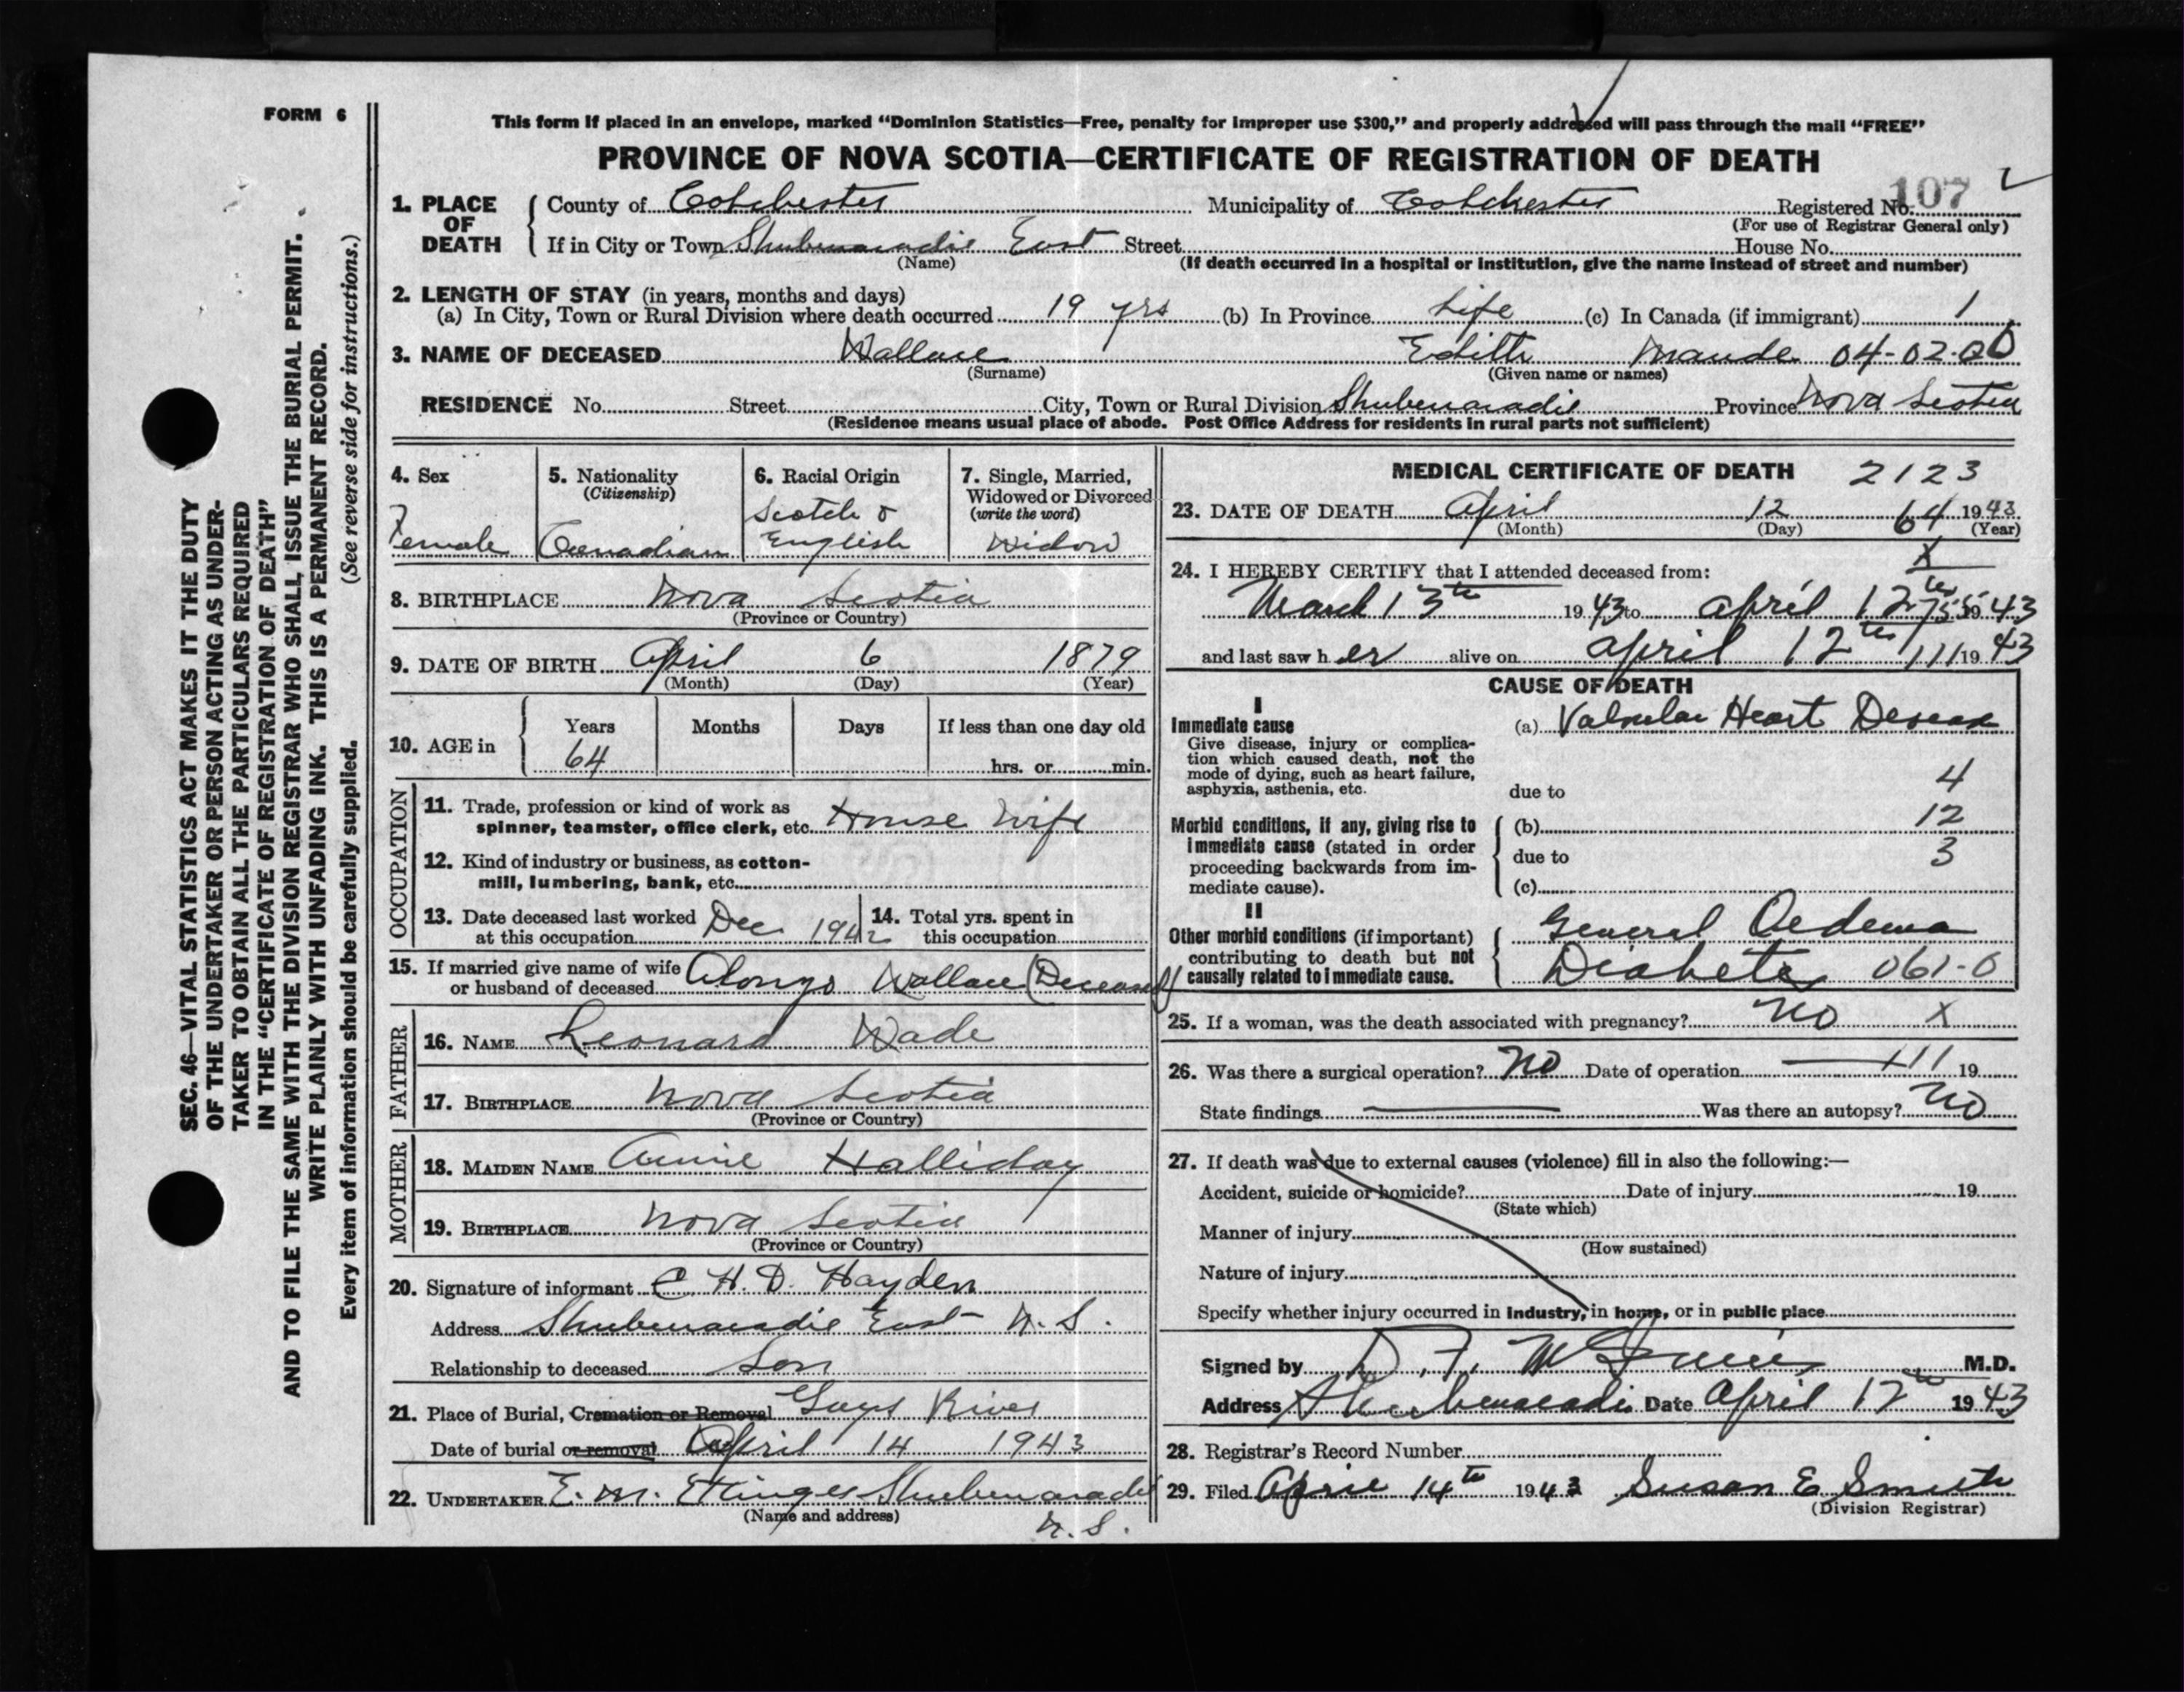 FORM 6
This form if placed in an envelope, marked “Dominion Statistics—Free, penalty for improper use $300,” and properly addressed will pass through the mail “FREE”
PROVINCE OF NOVA SCOTIA—CERTIFICATE OF REGISTRATION OF DEATH
107
1. PLACE OF DEATH { County of Colchester Municipality of Colchester Registered No.
(For use of Registrar General only)
If in City or Town Shubenacadie East Street House No.
(Name) (If death occurred in a hospital or institution, give the name instead of street and number)
2. LENGTH OF STAY (in years, months and days)
(a) In City, Town or Rural Division where death occurred 19 yrs (b) In Province Life (c) In Canada (if immigrant) 1
3. NAME OF DECEASED Wallace Edith Maude 04-02-00
(Surname) (Given name or names)
RESIDENCE No. Street City, Town or Rural Division Shubenacadie Province Nova Scotia
(Residence means usual place of abode. Post Office Address for residents in rural parts not sufficient)
4. Sex
Female
5. Nationality
(Citizenship)
Canadian
6. Racial Origin
Scotch &
English
7. Single, Married,
Widowed or Divorced
(write the word)
Widow
8. BIRTHPLACE Nova Scotia
(Province or Country)
9. DATE OF BIRTH April 6 1879
(Month) (Day) (Year)
10. AGE in { Years Months Days If less than one day old
64 hrs. or min.
OCCUPATION
11. Trade, profession or kind of work as
spinner, teamster, office clerk, etc. House Wife
12. Kind of industry or business, as cotton-
mill, lumbering, bank, etc.
13. Date deceased last worked
at this occupation Dec 1942
14. Total yrs. spent in
this occupation
15. If married give name of wife
or husband of deceased Alonzo Wallace (Deceased)
FATHER
16. NAME Leonard Wade
17. BIRTHPLACE Nova Scotia
(Province or Country)
MOTHER
18. MAIDEN NAME Annie Halliday
19. BIRTHPLACE Nova Scotia
(Province or Country)
20. Signature of informant C H. D. Hayden
Address Shubenacadie East N. S.
Relationship to deceased Son
21. Place of Burial, Cremation or Removal Gays River
Date of burial or removal April 14 1943
22. UNDERTAKER E. M. Ettinger Shubenacadie
(Name and address) N. S.
MEDICAL CERTIFICATE OF DEATH 2123
23. DATE OF DEATH April 12 64 1943
(Month) (Day) (Year)
X
24. I HEREBY CERTIFY that I attended deceased from:
March 13th 1943 to April 12th 1943
and last saw her alive on April 12th 111 1943
CAUSE OF DEATH
I
Immediate cause
Give disease, injury or complica-
tion which caused death, not the
mode of dying, such as heart failure,
asphyxia, asthenia, etc.
(a) Valvular Heart Disease
due to 4
Morbid conditions, if any, giving rise to
immediate cause (stated in order
proceeding backwards from im-
mediate cause).
(b) 12
due to 3
(c)
II
Other morbid conditions (if important)
contributing to death but not
causally related to immediate cause.
General Oedema
Diabetes 061-0
25. If a woman, was the death associated with pregnancy? No X
26. Was there a surgical operation? No Date of operation 19
State findings Was there an autopsy? No
27. If death was due to external causes (violence) fill in also the following:—
Accident, suicide or homicide? Date of injury 19
(State which)
Manner of injury
(How sustained)
Nature of injury
Specify whether injury occurred in industry, in home, or in public place
Signed by D. F. M.D.
Address Shubenacadie Date April 12th 1943
28. Registrar's Record Number
29. Filed April 14th 1943 Susan E Smith
(Division Registrar)
SEC. 46—VITAL STATISTICS ACT MAKES IT THE DUTY
OF THE UNDERTAKER OR PERSON ACTING AS UNDER-
TAKER TO OBTAIN ALL THE PARTICULARS REQUIRED
IN THE “CERTIFICATE OF REGISTRATION OF DEATH”
AND TO FILE THE SAME WITH THE DIVISION REGISTRAR WHO SHALL ISSUE THE BURIAL PERMIT.
WRITE PLAINLY WITH UNFADING INK. THIS IS A PERMANENT RECORD.
Every item of information should be carefully supplied. (See reverse side for instructions.)